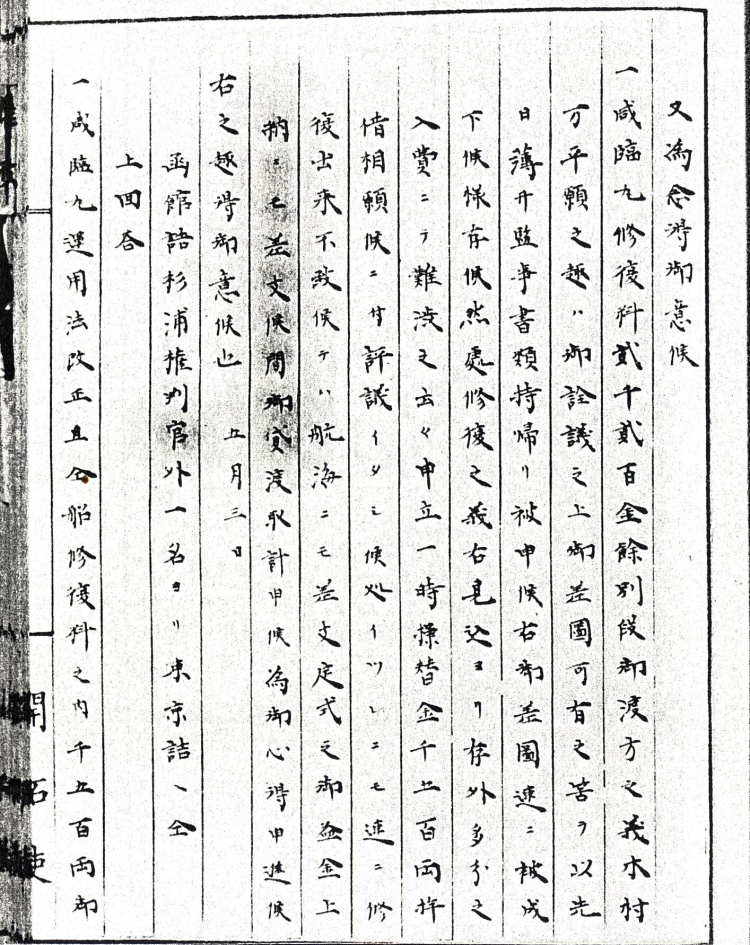 又為念得御意候
一咸臨丸修復料貳千貳百金餘別段御渡方之義木村
万平願之趣ハ御詮議之上御差圖可有之筈ヲ以先
日薄井監事書類持帰リ被申候右御差圖速ニ被成
下候様存候然處修復之義右見込ヨリ存外多分之
入費ニテ難渋之云々申立一時操替金千五百両拝
借相願候ニ付評議イタシ候処イツレニモ速ニ修
復出来不致候テハ航海ニモ差支定式之御益金上
納ニモ差支候間御貸渡取計申候為御心得申進候
右之趣得御意候也 五月三日
函館詰杉浦権判官外一名ヨリ東京詰ヘ仝
上回答
一咸臨丸運用法改正且仝船修復料之内千五百両御
開拓使